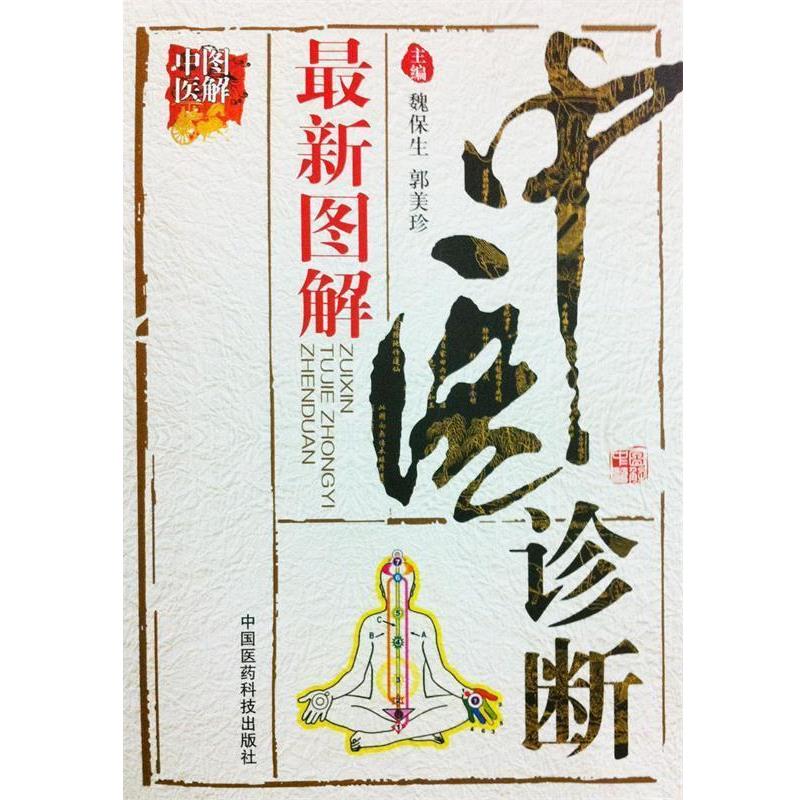 中医
诊断
主编
魏保生 郭美珍
最新图解
ZUIXIN
TUJIE ZHONGYI
ZHENDUAN
图解
中医
中国医药科技出版社
7
6
5
C
B
A
4
3
2
1